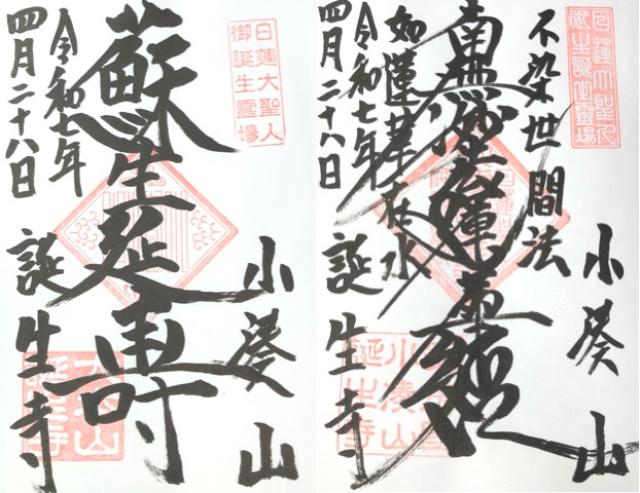 日蓮大聖人
御誕生霊場
小湊山
蘇生延寿
令和七年
四月二十八日
誕生寺
大本山
誕生寺
日蓮大聖人
御生誕霊場
小湊山
不染世間法
南無妙法蓮華経
如蓮華在水
令和七年
四月二十八日
誕生寺
小湊山
誕生寺